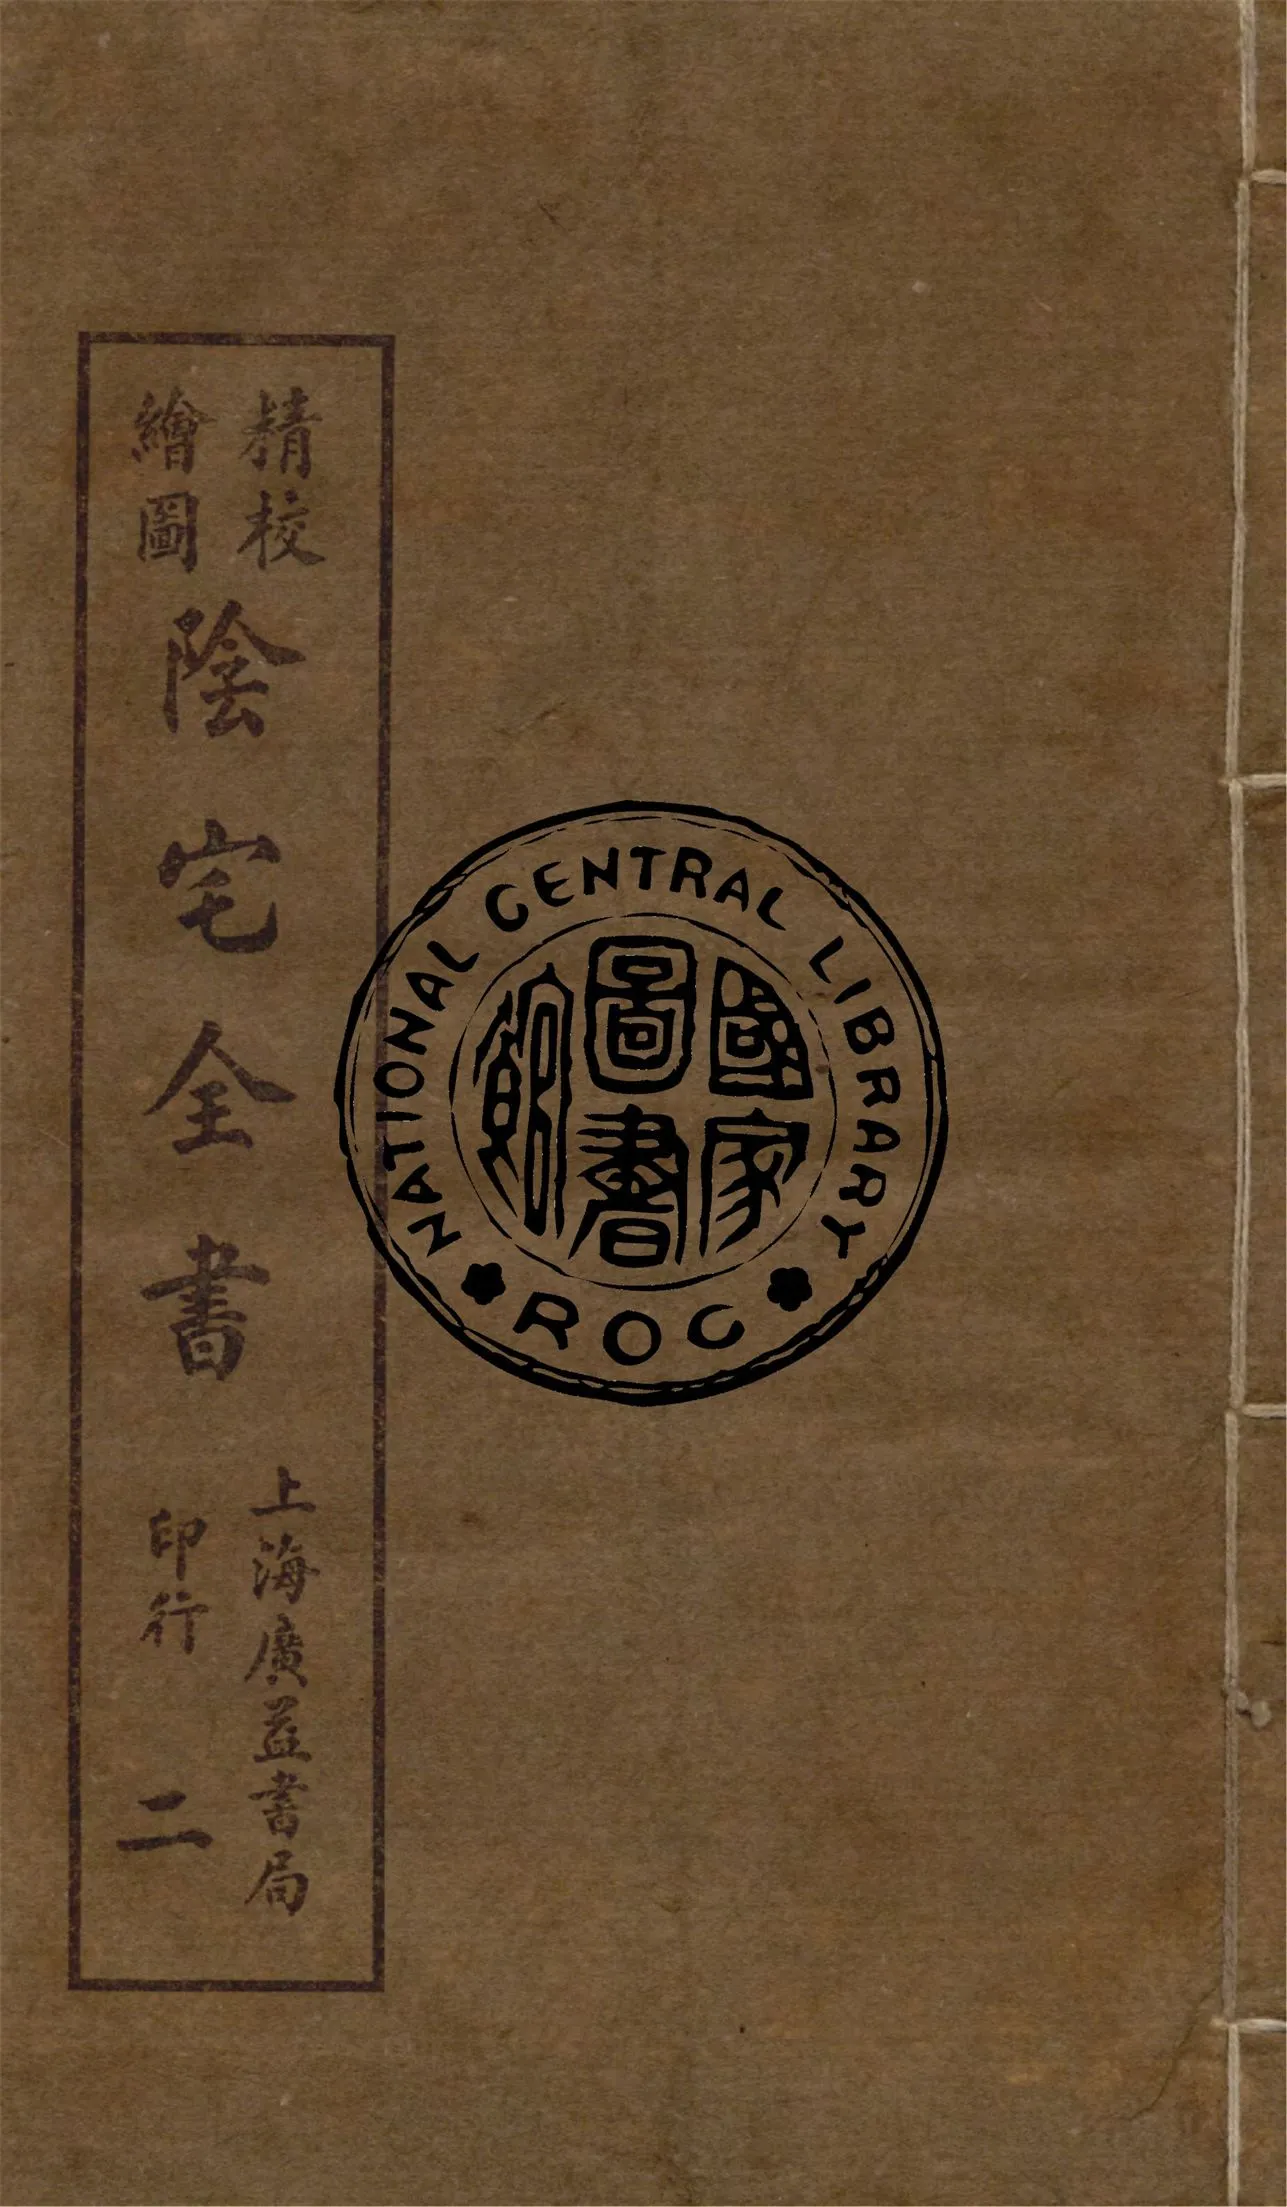 精校
繪圖
陰宅全書
上海廣益書局
印行
二
NATIONAL CENTRAL LIBRARY
國家
圖書
館
ROC